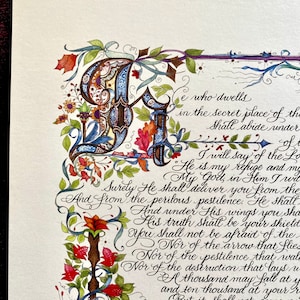 He who dwells
in the secret place of th
Shall abide under
of t
I will say of the Lo
He is my refuge and my
My God, in Him I wi
Surely He shall deliver you from the
And from the perilous pestilence. He shall
And under His wings you sha
His truth shall be your shield
You shall not be afraid of the
Nor of the arrow that flies
Nor of the pestilence that walk
Nor of the destruction that lays w
A thousand may fall at y
and ten thousand at your
But it shall